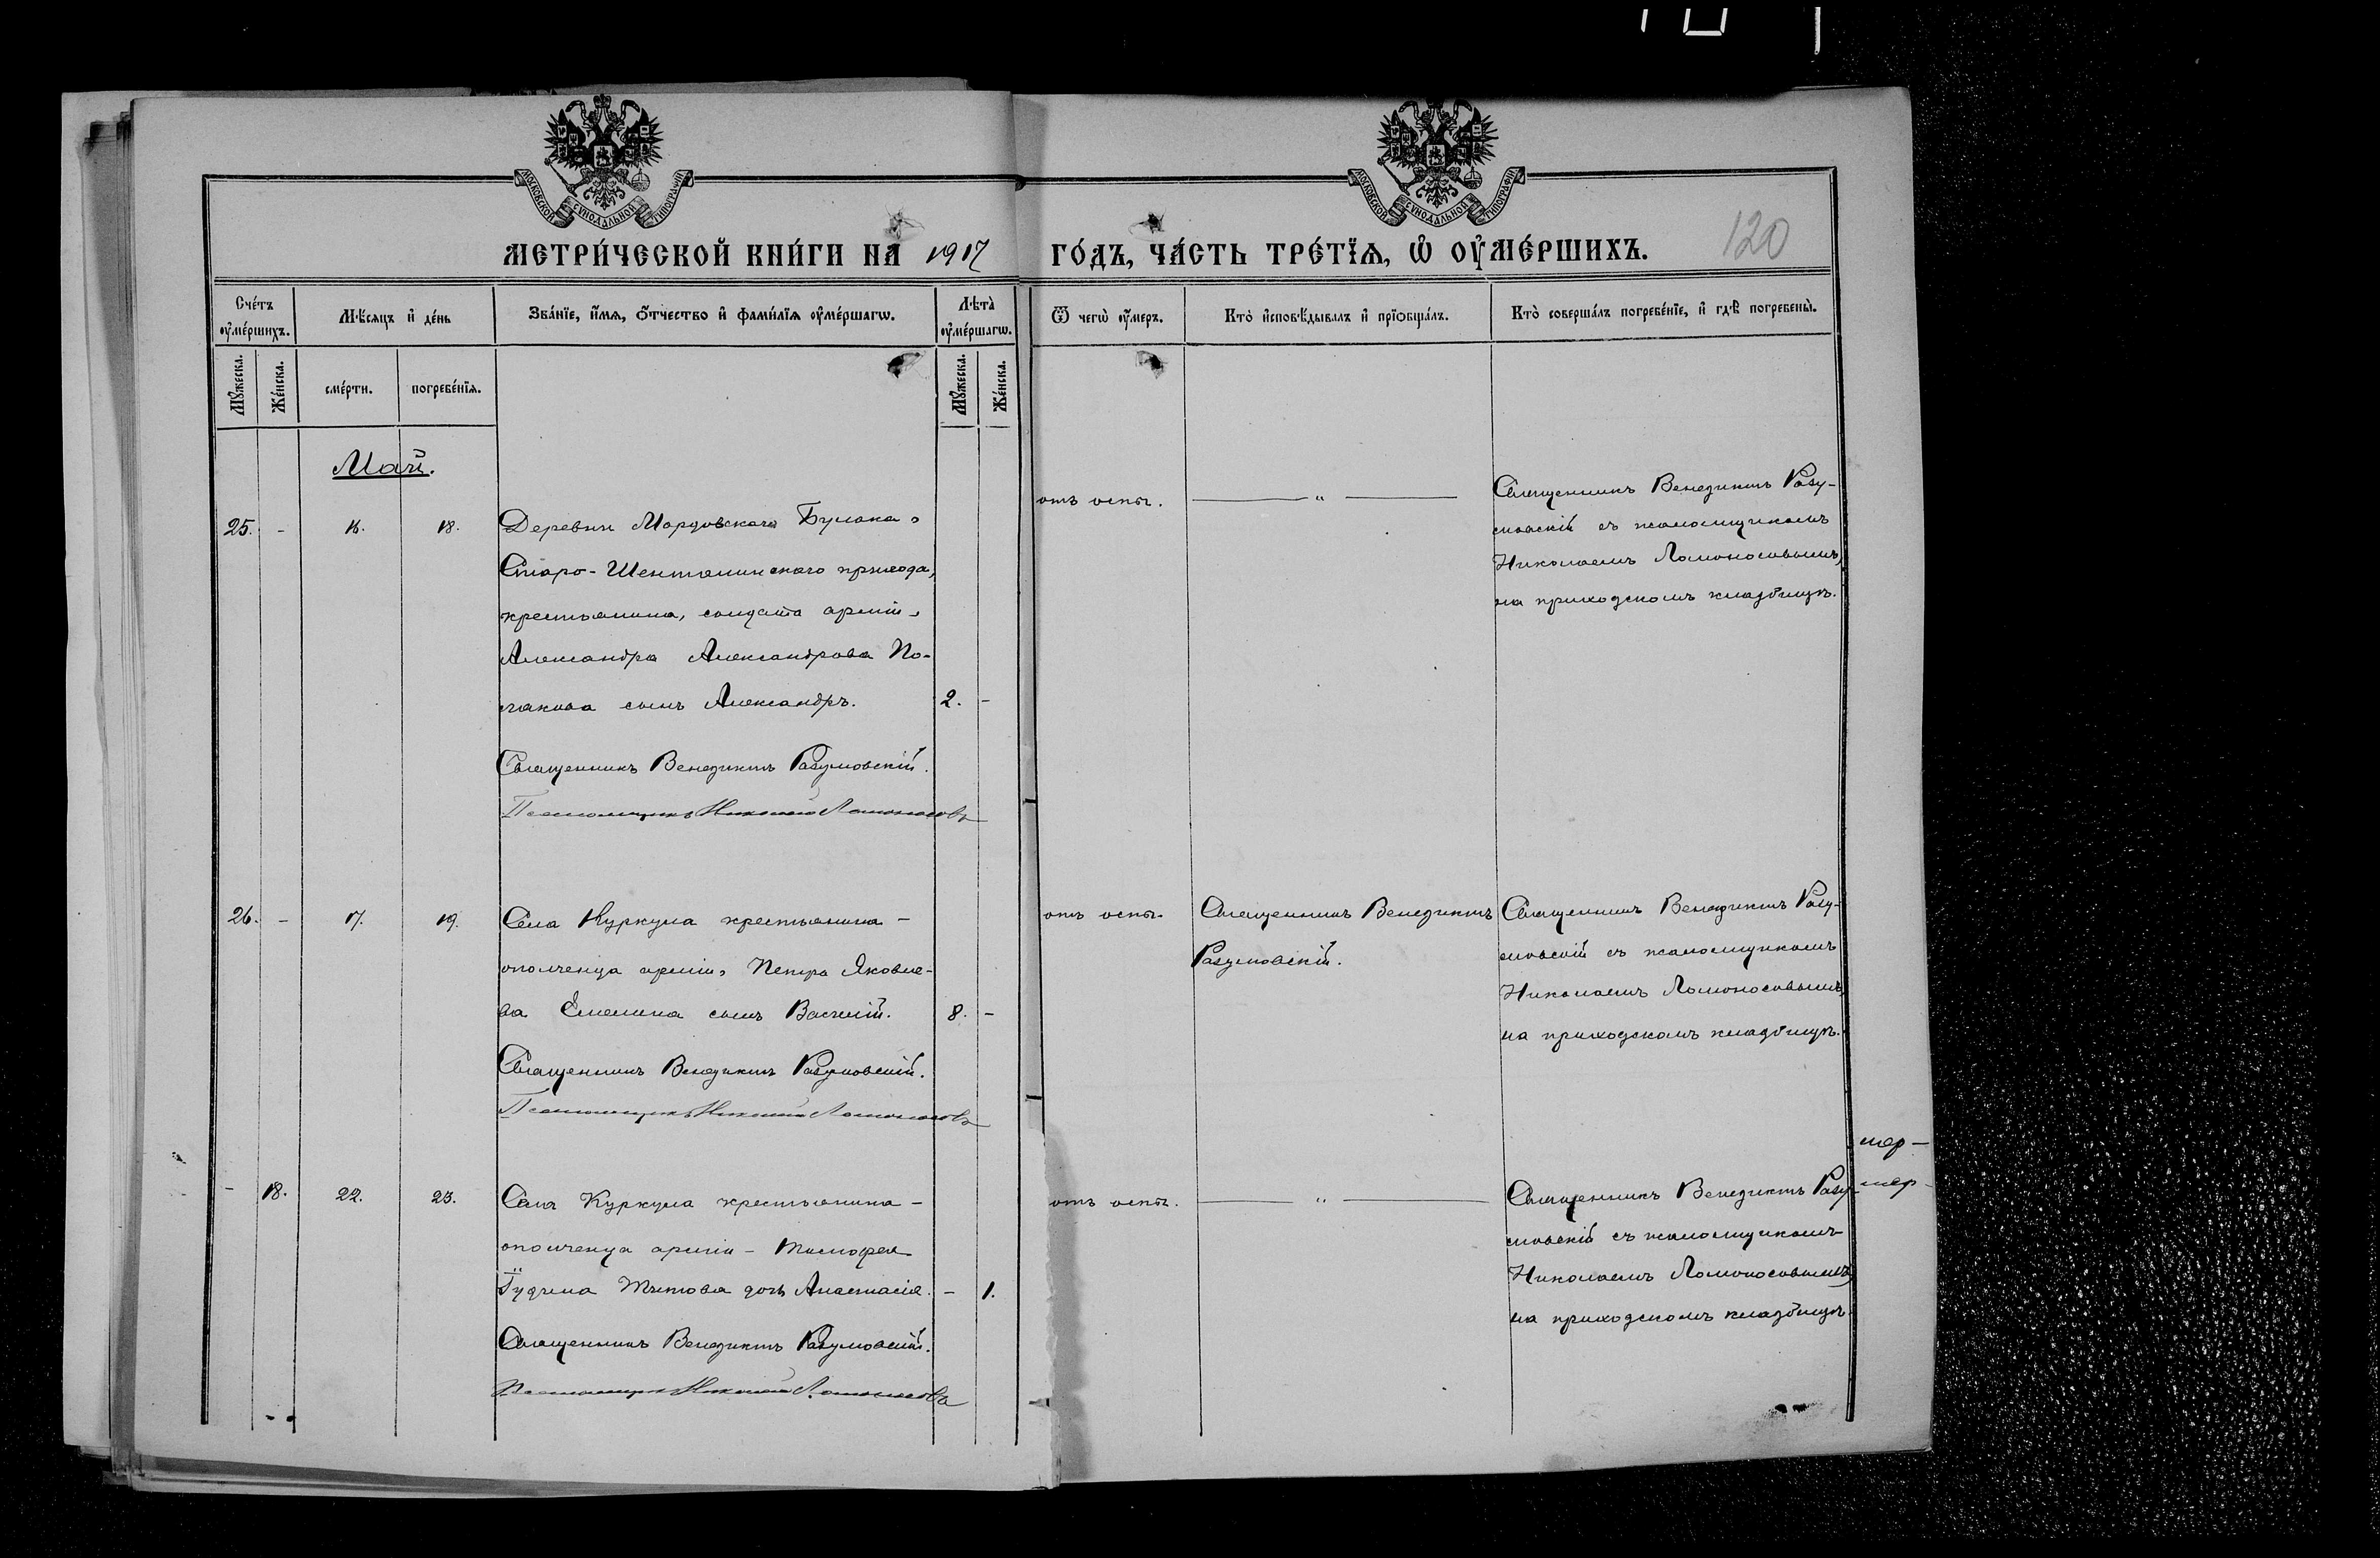 МОСКОВСКОЙ СѴНОДАЛЬНОЙ ТИПОГРАФІИ
МОСКОВСКОЙ СѴНОДАЛЬНОЙ ТИПОГРАФІИ
МЕТРИ́ЧЕСКОЙ КНИ́ГИ НА 1917 ГО́ДЪ, ЧА́СТЬ ТРЕ́ТЇѦ, Ѡ ОУМЕ́РШИХЪ.
120
Сче́тъ оуме́ршихъ.
Мѣ́сяцъ и де́нь
Зва́нїе, и́мѧ, о́тчество и фами́лїѧ оуме́ршагѡ.
Лѣ́та оуме́ршагѡ.
Ѿ чегѡ̀ оу́меръ.
Кто̀ исповѣ́дывалъ и прїѡбща́лъ.
Кто̀ соверша́лъ погребе́нїе, и гдѣ̀ погребены̀.
Мꙋжеска.
Же́нска.
сме́рти.
погребе́нїѧ.
Мꙋжеска.
Же́нска.
Май.
25. - 16. 18. Деревни Мордовскаго Булака,
Старо-Шенталинскаго прихода,
крестьянина, солдата арміи,
Александра Александрова По-
лакова сынъ Александръ. 2. -
Священникъ Венедиктъ Разумовскій.
Псаломщикъ Николай Ломоносовъ
отъ оспы.
— " —
Священникъ Венедиктъ Разу-
мовскій съ псаломщикомъ
Николаемъ Ломоносовымъ,
на приходскомъ кладбищѣ.
26. - 17. 19. Села Куркула крестьянина -
ополченца арміи, Петра Яковле-
ва Емелина сынъ Василій. 8. -
Священникъ Венедиктъ Разумовскій.
Псаломщикъ Николай Ломоносовъ
отъ оспы.
Священникъ Венедиктъ
Разумовскій.
Священникъ Венедиктъ Разу-
мовскій съ псаломщикомъ
Николаемъ Ломоносовымъ,
на приходскомъ кладбищѣ.
- 18. 22. 23. Села Куркула крестьянина -
ополченца арміи - Тимофея
Титова дочь Анастасія. - 1.
Священникъ Венедиктъ Разумовскій.
Псаломщикъ Николай Ломоносовъ
отъ оспы.
— " —
Священникъ Венедиктъ Разу-
мовскій съ псаломщикомъ
Николаемъ Ломоносовымъ,
на приходскомъ кладбищѣ.